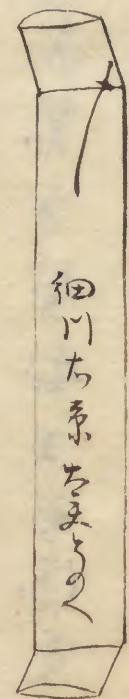 細川右京太夫とのへ